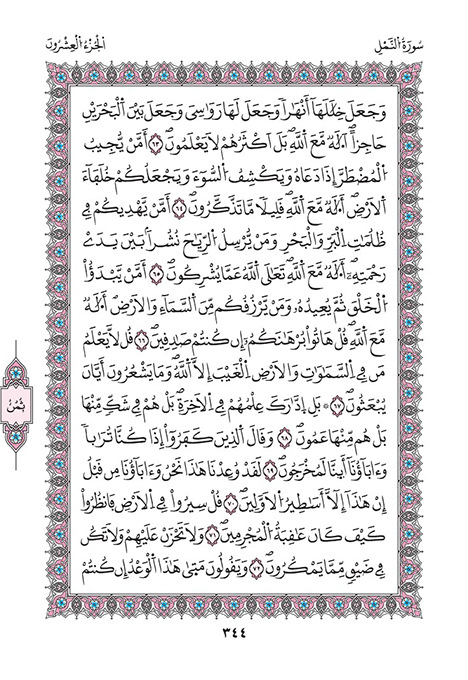 سُورَةُ النَّمْلِ
الْجُزْءُ الْعِشْرُونَ
وَجَعَلَ خِلَٰلَهَآ أَنْهَٰراٗ وَجَعَلَ لَهَا رَوَٰسِىَ وَجَعَلَ بَيْنَ اَلْبَحْرَيْنِ
حَاجِزاًۖ اَ۟لَٰهٞ مَّعَ اَللَّهِۖ بَلَ اَكْثَرُهُمْ لَا يَعْلَمُونَۖ ٦٣ أَمَّنْ يُّجِيبُ
اُلْمُضْطَرَّ إِذَا دَعَاهُ وَيَكْشِفُ اُلسُّوٓءَ وَيَجْعَلُكُمْ خُلَفَآءَ
اَلَارْضِۖ أَ۟لَٰهٞ مَّعَ اَللَّهِۖ قَلِيلاٗ مَّا تَذَّكَّرُونَۖ ٦٤ أَمَّنْ يَّهْدِيكُمْ فِے
ظُلُمَٰتِ اِلْبَرِّ وَالْبَحْرِ وَمَنْ يُّرْسِلُ اُلرِّيَٰحَ نُشُراَۢ بَيْنَ يَدَےْ
رَحْمَتِهِۦٓۖ أَ۟لَٰهٞ مَّعَ اَللَّهِۖ تَعَٰلَى اَللَّهُ عَمَّا يُشْرِكُونَۖ ٦٥ أَمَّنْ يَّبْدَؤُاْ
اُلْخَلْقَ ثُمَّ يُعِيدُهُۥ وَمَنْ يَّرْزُقُكُم مِّنَ اَلسَّمَآءِ وَالَارْضِۖ أَ۟لَٰهٞ
مَّعَ اَللَّهِۖ قُلْ هَاتُواْ بُرْهَٰنَكُمُۥٓ إِن كُنتُمْ صَٰدِقِينَۖ ٦٦ قُل لَّا يَعْلَمُ
مَن فِے اِلسَّمَٰوَٰتِ وَالَارْضِ اِلْغَيْبَ إِلَّا اَللَّهُۖ وَمَا يَشْعُرُونَ أَيَّانَ
يُبْعَثُونَۖ ٦٧ بَلِ اِدَّٰرَكَ عِلْمُهُمْ فِے اِلَاخِرَةِۖ بَلْ هُمْ فِے شَكّٖ مِّنْهَاۖ
بَلْ هُم مِّنْهَا عَمُونَۖ ٦٨ وَقَالَ اَلذِينَ كَفَرُوٓاْ إِذَا كُنَّا تُرَٰباٗ
وَءَابَآؤُنَآ أَىِٕنَّا لَمُخْرَجُونَۖ ٦٩ لَقَدْ وُعِدْنَا هَٰذَا نَحْنُ وَءَابَآؤُنَا مِن قَبْلُ
إِنْ هَٰذَآ إِلَّآ أَسَٰطِيرُ اُلَاوَّلِينَۖ ٧٠ قُلْ سِيرُواْ فِے اِلَارْضِ فَانظُرُواْ
كَيْفَ كَانَ عَٰقِبَةُ اُلْمُجْرِمِينَۖ ٧١ وَلَا تَحْزَنْ عَلَيْهِمْ وَلَا تَكُن
فِے ضَيْقٖ مِّمَّا يَمْكُرُونَۖ ٧٢ وَيَقُولُونَ مَتَىٰ هَٰذَا اَلْوَعْدُ إِن كُنتُمْ
ثُمُنْ
٣٤٤